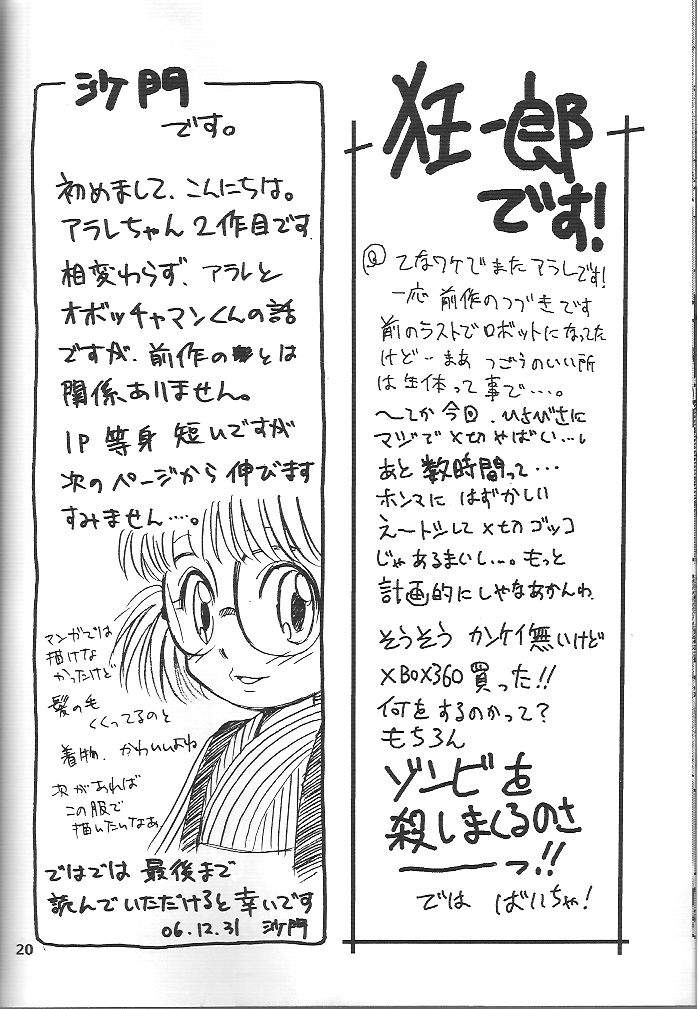 沙門
です。
初めまして、こんにちは。
アラレちゃん2作目です
相変わらず、アラレと
オボッチャマンくんの話
ですが、前作のとは
関係ありません。
1P 等身 短いですが
次のページから 伸びます
すみません…。
マンガでは
描けな
かったけど
髪の毛
くくってるのと
着物、かわいいよね
次があれば
この服で
描いたいなあ
ではでは 最後まで
読んでいただけると 幸いです
06.12.31 沙門
狂一郎
です!
てなワケでまたアラレです!
一応 前作のつづきです
前のラストでロボットになってた
けど…まあ つごうのいい所
は生体って事で…。
〜てか今回、ひさびさに
マジで〆切やばい…。
あと 数時間って…
ホンマに はずかしい
え〜トシして〆切ゴッコ
じゃあるまいし…。もっと
計画的にしゃなあかんわ
そうそう カンケイ無いけど
XBOX360 買った!!
何をするのかって?
もちろん
ゾンビを
殺しまくるのさ
――っ!!
では ばいちゃ!
20